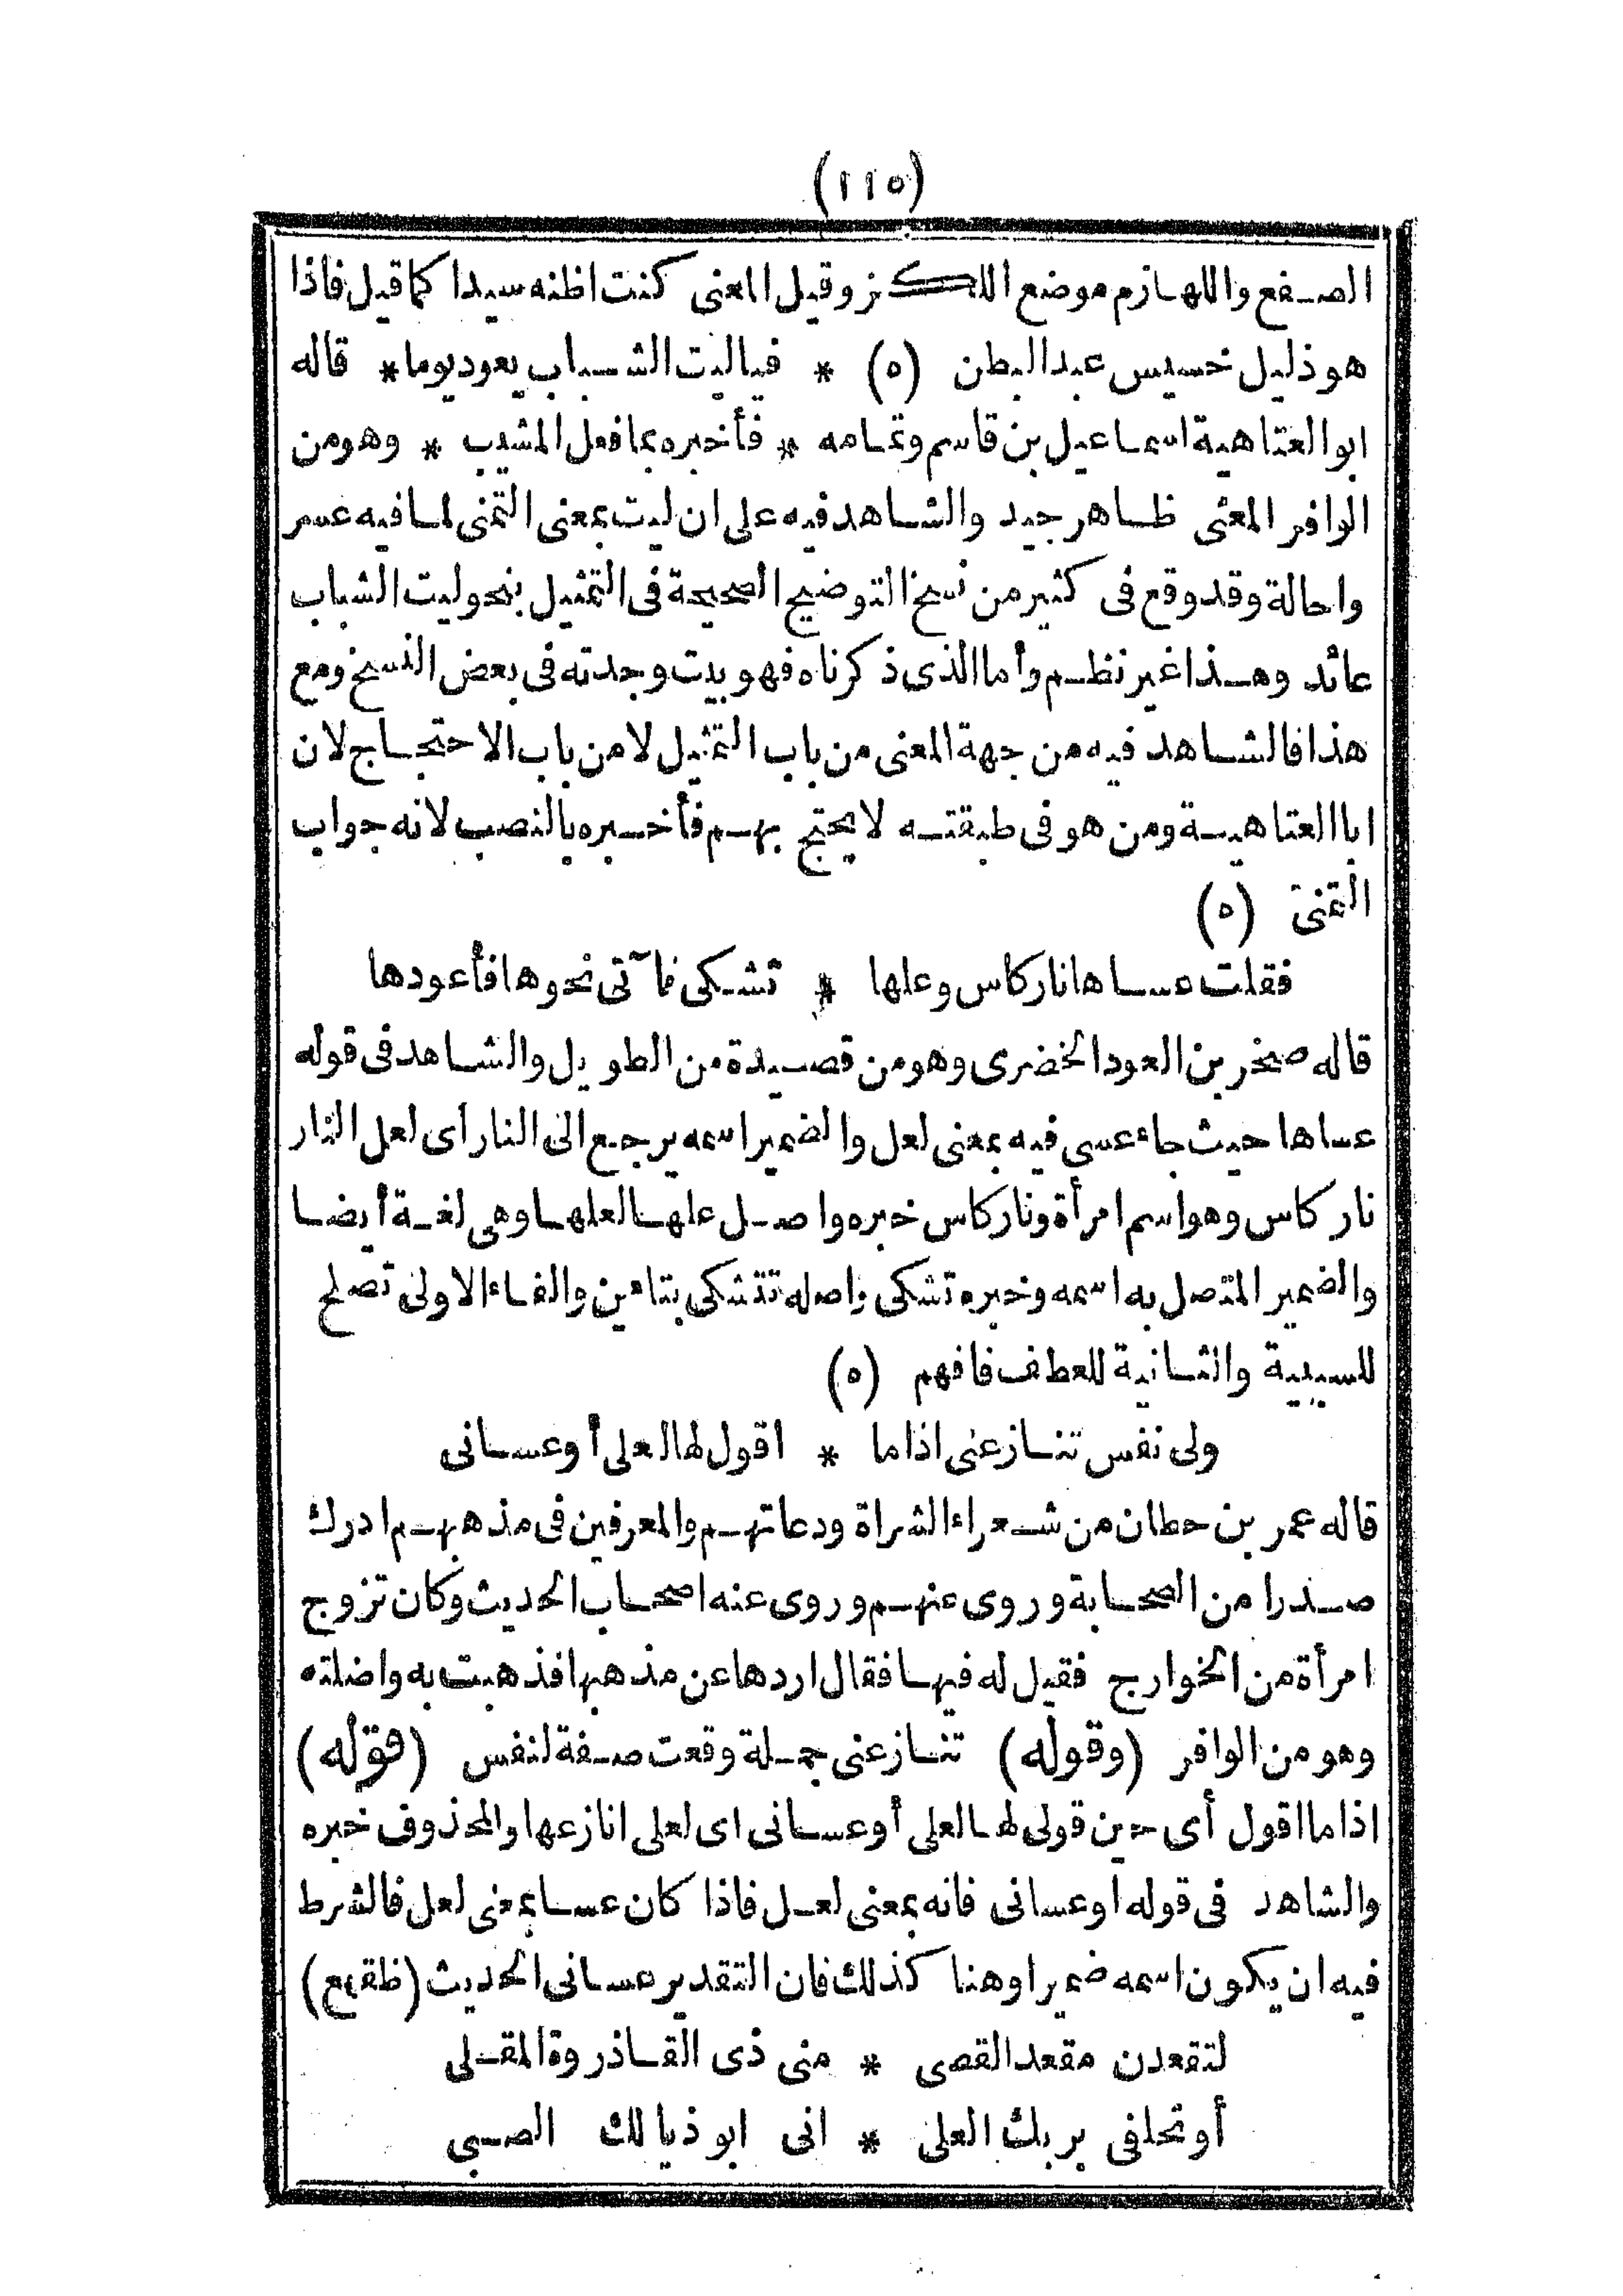 (١١٥)
الصفع واللهازم موضع اللكز وقيل المعنى كنت اظنه سيدا كما قيل فاذا
هو ذليل خسيس عبد البطن (ه) * فياليت الشباب يعود يوما * قاله
ابو العتاهية اسماعيل بن قاسم وتمامه * فأخبره بما فعل المشيب * وهو من
الوافر المعنى ظاهر جيد والشاهد فيه على ان ليت بمعنى التمنى لما فيه عسر
واحالة وقد وقع فى كثير من نسخ التوضيح الصحيحة فى التمثيل بنحو ليت الشباب
عائد وهذا غير نظم وأما الذى ذكرناه فهو بيت وجدته فى بعض النسخ ومع
هذا فالشاهد فيه من جهة المعنى من باب التمثيل لا من باب الاحتجاج لان
ابا العتاهية ومن هو فى طبقته لا يحتج بهم فأخبره بالنصب لانه جواب
التمنى (ه)
فقلت عساها نار كاس وعلها * تشكى فآتى نحوها فأعودها
قاله صخر بن العود الخضرى وهو من قصيدة من الطويل والشاهد فى قوله
عساها حيث جاء عسى فيه بمعنى لعل والضمير اسمه يرجع الى النار أى لعل النار
نار كاس وهو اسم امرأة ونار كاس خبره واصل علها لعلها وهى لغة أيضا
والضمير المتصل به اسمه وخبره تشكى واصله تتشكى بتاءين والفاء الاولى تصلح
للسببية والثانية للعطف فافهم (ه)
ولى نفس تنازعنى اذا ما * اقول لها لعلى أو عسانى
قاله عمر بن حطان من شعراء الشراة ودعاتهم والمعرفين فى مذهبهم ادرك
صدرا من الصحابة وروى عنهم وروى عنه اصحاب الحديث وكان تزوج
امرأة من الخوارج فقيل له فيها فقال اردها عن مذهبها فذهبت به واضلته
وهو من الوافر (وقوله) تنازعنى جملة وقعت صفة لنفس (قوله)
اذا ما اقول أى حين قولى لها لعلى أو عسانى اى لعلى انازعها والمحذوف خبره
والشاهد فى قوله او عسانى فانه بمعنى لعل فاذا كان عسا بمعنى لعل فالشرط
فيه ان يكون اسمه ضميرا وهنا كذلك فان التقدير عسانى الحديث (ظقهع)
لتقعدن مقعد القصى * منى ذى القاذورة المقلى
أو تحلفى بربك العلى * انى ابو ذيالك الصبى